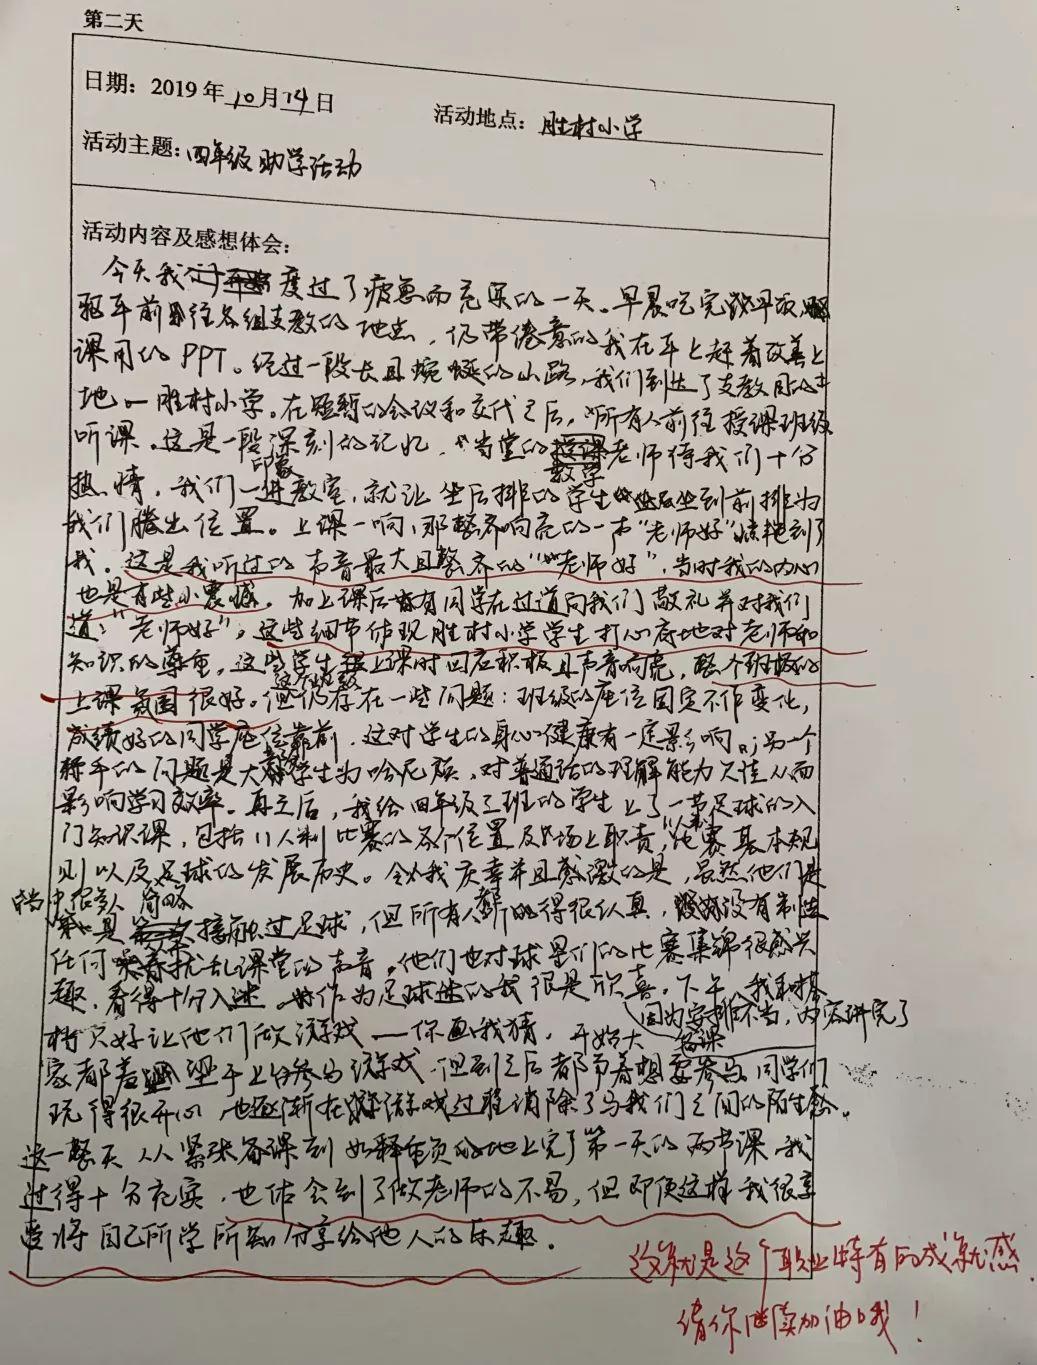 第二天
日期：2019年10月14日
活动地点：胜村小学
活动主题：四年级助学活动
活动内容及感想体会：
今天我度过了疲惫而充实的一天。早晨吃完早饭
驱车前往各组支教的地点，仍带倦意的我在车上赶着改善上
课用的PPT。经过一段长且蜿蜒的小路，我们到达了支教目的
地—胜村小学。在短暂的会议和交代之后，所有人前往授课班级
听课。这是一段印象深刻的记忆，当堂的数学老师待我们十分
热情，我们一进教室，就让坐后排的学生坐到前排为
我们腾出位置。上课一响，那整齐响亮的一声"老师好"惊艳到了
我。这是我听过的声音最大且整齐的"老师好"，当时我的内心
也是有些小震撼。加上课后有同学在过道向我们敬礼并对我们
道："老师好"。这些细节体现胜村小学学生打心底地对老师和
知识的尊重，这些学生上课时回应积极且声音响亮，整个班级的
上课氛围很好。但仍存在一些问题：班级的座位固定不作变化，
成绩好的同学座位靠前，这对学生的身心健康有一定影响；另一个
棘手的问题是大多数学生为哈尼族，对普通话的理解能力欠佳从而
影响学习效率。再之后，我给四年级三班的学生上了一节足球的入
门知识课，包括11人制比赛的各个位置及场上职责，11人制比赛基本规
则以及足球的发展历史。令我庆幸并且感激的是，虽然他们
当中很多人是简略接触过足球，但所有人都听得很认真，没有制造
任何扰乱课堂的声音，他们也对球星们的比赛集锦很感兴
趣，看得十分入迷。作为足球迷的我很是欣喜。下午，我和搭
档因为安排不当，内容讲完了
只好让他们做游戏——你画我猜，开始大
家都羞于上台参与游戏，但到之后都争着想要参与。同学们
玩得很开心，也逐渐在游戏过程消除了与我们之间的陌生感。
这一整天从紧张备课到如释重负的地上完了第一天的两节课，我
过得十分充实，也体会到了做老师的不易，但即便这样我很享
受将自己所学所知分享给他人的乐趣。
这就是这个职业特有的成就感
请你继续加油哦！